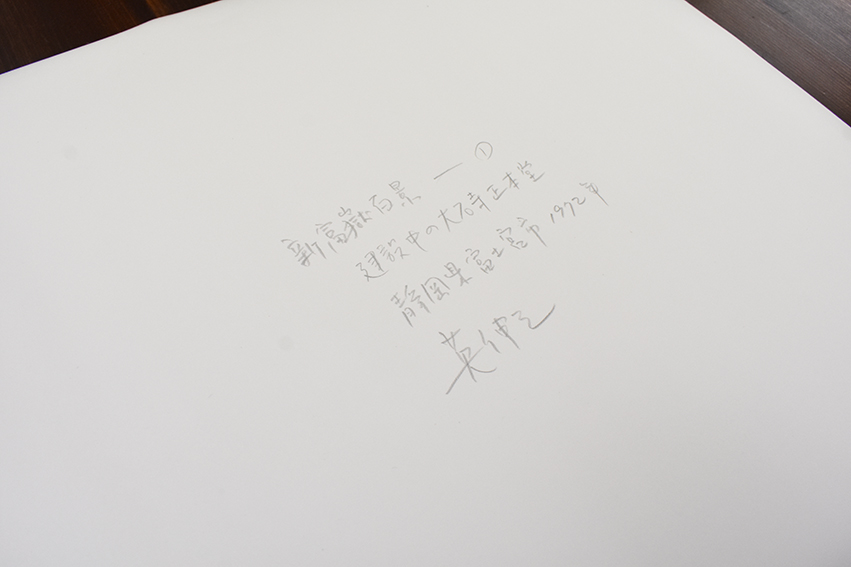 新富嶽百景 — ①
建設中の大石寺正本堂
静岡県富士宮市 1972年
英伸三